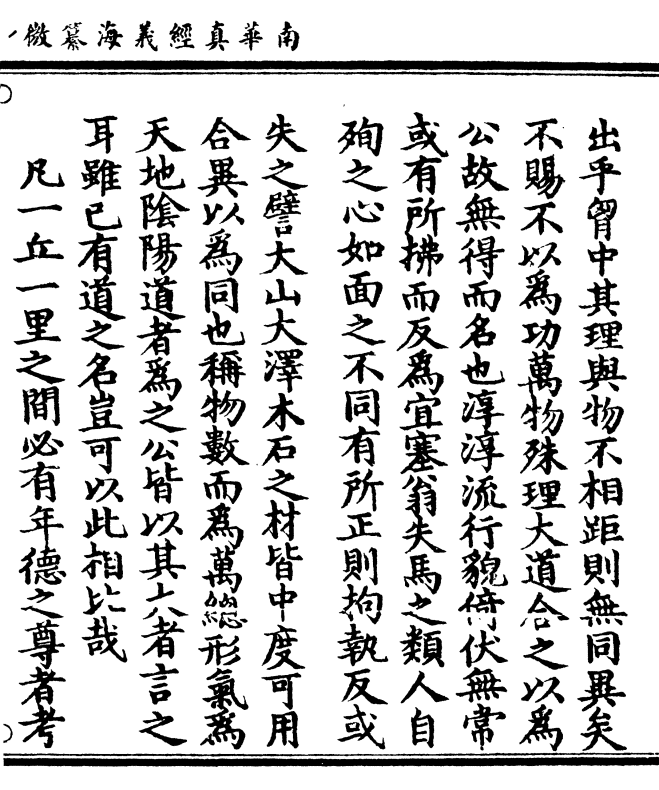 南華真經義海纂微
出乎胷中其理與物不相距則無同異矣
不賜不以為功萬物殊理大道合之以為
公故無得而名也淳淳流行貌倚伏無常
或有所拂而反為宜塞翁失馬之類人自
殉之心如面之不同有所正則拘執反或
失之譬大山大澤木石之材皆中度可用
合異以為同也稱物數而為萬總形氣為
天地陰陽道者為之公皆以其大者言之
耳雖已有道之名豈可以此相比哉
凡一丘一里之間必有年德之尊者考